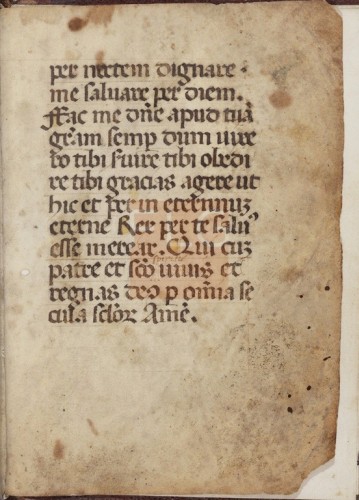 per noctem dignare
me saluare per diem.
Fac me dñe apud tuã
grãm semp dum uiue
ro tibi seruire tibi obedi
re tibi gracias agere ut
hic et per in eternuz
eterne Rex per te saluꝰ
esse merear. Qui cuz
patre et scõ uiuis et
regnas deo p omĩa se
cula sclõr Amẽ.